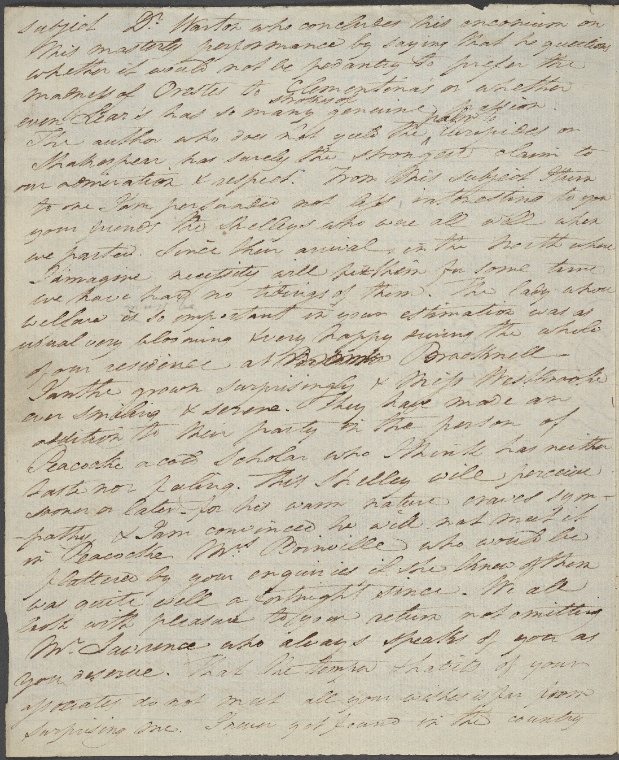 subject Dr. Warton who concludes this encomium on
this masterly performance by saying that he questions
whether it would not be pedantry to prefer the
madness of Orestes to Clementinas or whether
even Lear's has so many strokes of genuine passion.
The author who does not yield the palm to Euripides or
Shakespear has surely the strongest claim to
our admiration & respect. From this subject I turn
to one I am persuaded not less interesting to you
your friends the Shelleys who were all well when
we parted. Since their arrival in the North where
I imagine necessity will fix them for some time
we have had no tidings of them. The lady whose
welfare is so important in your estimation was as
usual very blooming & very happy during the whole
of our residence at Bracknell
Ianthe grown surprisingly & Miss Westbrooke
ever smiling & serene. They have made an
addition to their party in the person of
Peacocke a cold Scholar who I think has neither
taste nor feeling. This Shelley will perceive
sooner or later for his warm nature craves sym-
-pathy & I am convinced he will not meet it
in Peacocke Mrs Boinville who would be
flattered by your enquiries if she knew of them
was quite well a fortnight since. We all
look with pleasure to your return not omitting
Mr. Lawrence who always speaks of you as
you deserve. That the temper & habits of your
associates do not meet all your wishes is far from
surprising me. I never yet found in the country